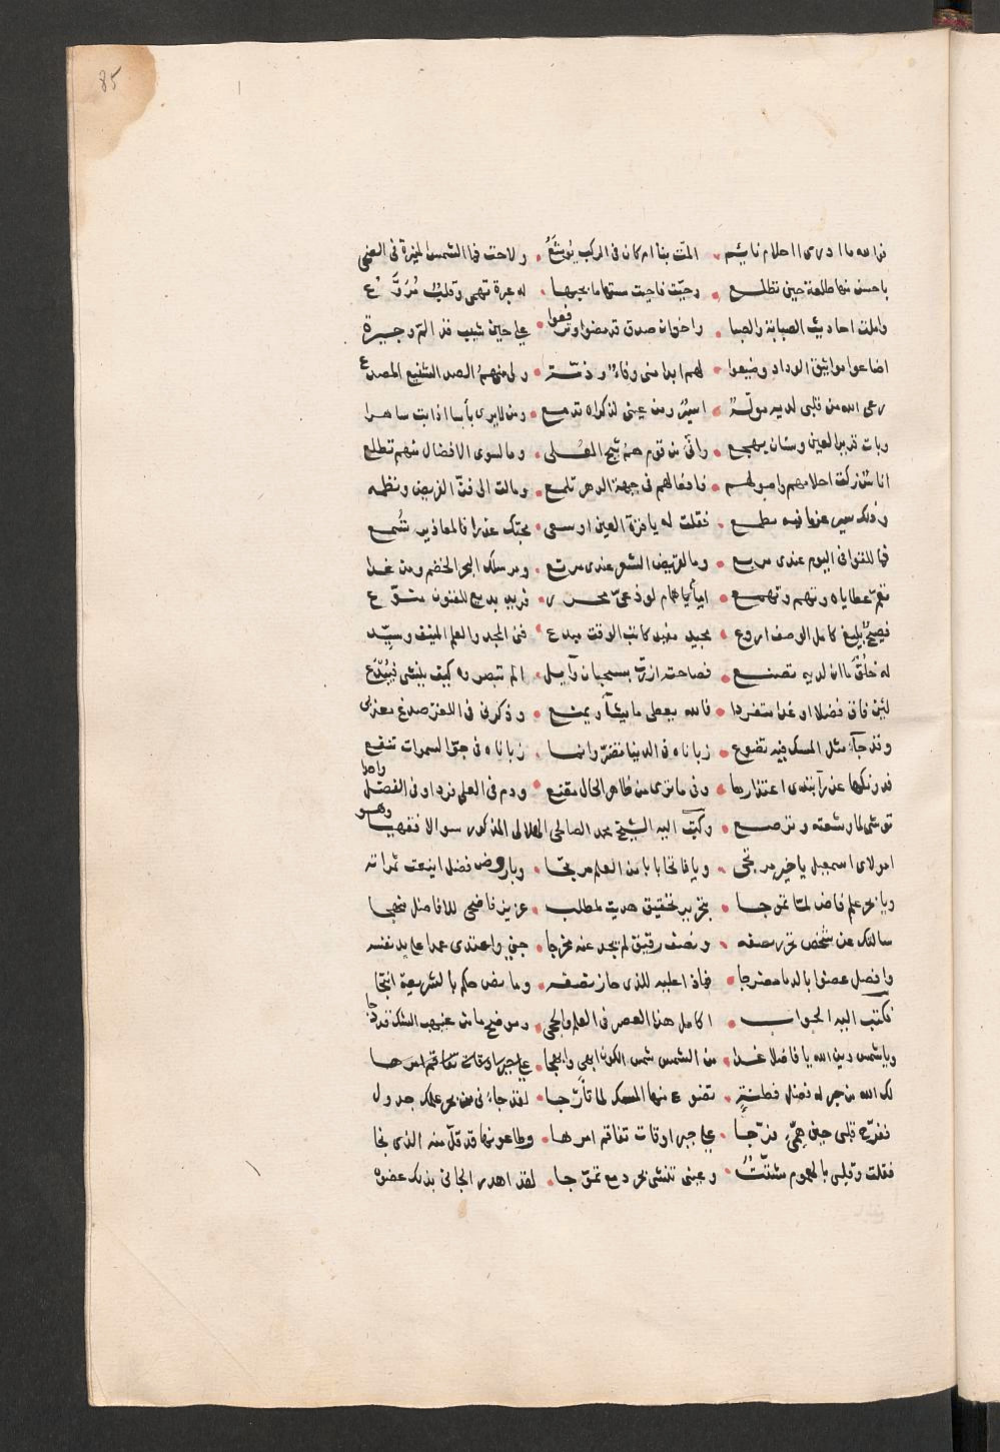 85
فوالله ما ادرى ااحلام نائم • المّت بنا ام كان فى الركب يُوشَعُ • ولاحت فما الشمس المنيرة فى الضحى
باحسن منها طلعة حين تطلع • وحيّت فاحيت مستهاما بحبها • له عبرة تهمى وقلبٌ مُرَوَّع
واملت احاديث الصبابة والصبا • واخوان صدق قد مضوا وترفعوا • على حين شيب قد الم وجيرة
اضاعوا مواثيق الوداد وضيعوا • لهم ابدا منى وفاءٌ وذمّة • ولى منهم الصد الشنيع المصدع
رعى الله من قلبى لديه مولّهٌ • اسيرٌ ومن عينى لذكراه تدمع • ومن لا يرى بأسا اذا بت ساهرا
وبات قرير العين وسنان يهجع • وانّى من قوم همُ شيح العُلى • وما لسوى الافضال منهم تطلع
اناس زكت احلامهم واصولهم • فافعالهم فى جبهة الدهر تلمع • ومالت الى فنّ القريض ونظمه
وذلك شىء عز ما فيه مطمع • فقلت له يا قرة العين اوسعى • محبّك عذرا فالمعاذير تُسمع
فما للغوانى اليوم عندى مربع • وما لقريض الشعر عندى مرتع • ومن سلك البحر الخضم ومن غدا
تعمّ عطاياه وتهم وتهمع • امام همام لوذعىّ محرر • قريب بديع للفنون منوّع
فصيحٌ بليغ كامل الوصف اروع • مجيد مفيد كاتب الوقت مبدع • فتى المجد والعلم المنيف وسيّد
له خُلُقٌ ما ان لديه تصنع • فصاحته ازرت بسحبان وآيل • الم تبصروه كيف ينشى فيُبْدِع
لئن فاق فضلا او غدا متفردا • فالله يعطى ما يشآء ويمنع • وذكرنى فى اللغز صدغ معذبى
وقد جآء مثل المسك فيه تضوع • زباناه فى الدنيا تضرّ وانما • زباناه فى جوّ السموات تنفع
فدونكها عذرآء تبدى اعتذارها • وفى ما ترى من ظاهر الحال مقنع • ودم فى العلى فردا وفى الفضل واحدا
توشى لما وشعته وترصع • وكتب اليه الشيخ محمد الصالحى الهلالى المذكور سوالا فقهيا وهو
امولاى اسمعيل يا خير مرتجى • ويا فاتحا بابا من العلم مرتجا • ويا روض فضل اينعت ثمراته
ويا بحر علم فاض لمّا تموجا • بتحرير تحقيق هديت لمطلب • عزيز فاضحى للافاضل منهجا
سالتك عن شخص تحرر نصفه • ونصف رقيق لم يجد عنه مخرجا • جنى واعتدى عمدا على يد نفسه
وافصل عضوا بالدما مضرجا • فماذا عليه للذى حاز نصفه • وما نص حكم بالشريعة انتجا
فكتب اليه الجواب • اكامل هذا العصر فى العلم والحجى • وموضح ما من غيهب الشك قد دجا
ويا شمس دين الله يا فاضلا غدا • من الشمس شمس الكون ابهى وابهجا • على حبر اوقات تفاقم امرها
لك الله من حبر له فضل فطنةٍ • تضوع منها المسك لما تأرّجا • لقد جاءنى من بحر علمك جدول
ففرّح قلبى حين همّىَ فرّجا • على حبر اوقات تفاقم امرها • وطاعونها قد قلّ منه الذى نجا
فقلت وقلبى بالهموم مشتّتٌ • وعينى تنشى بحر دمع تموّجا • لقد اهدر الجانى بذلك عضوه